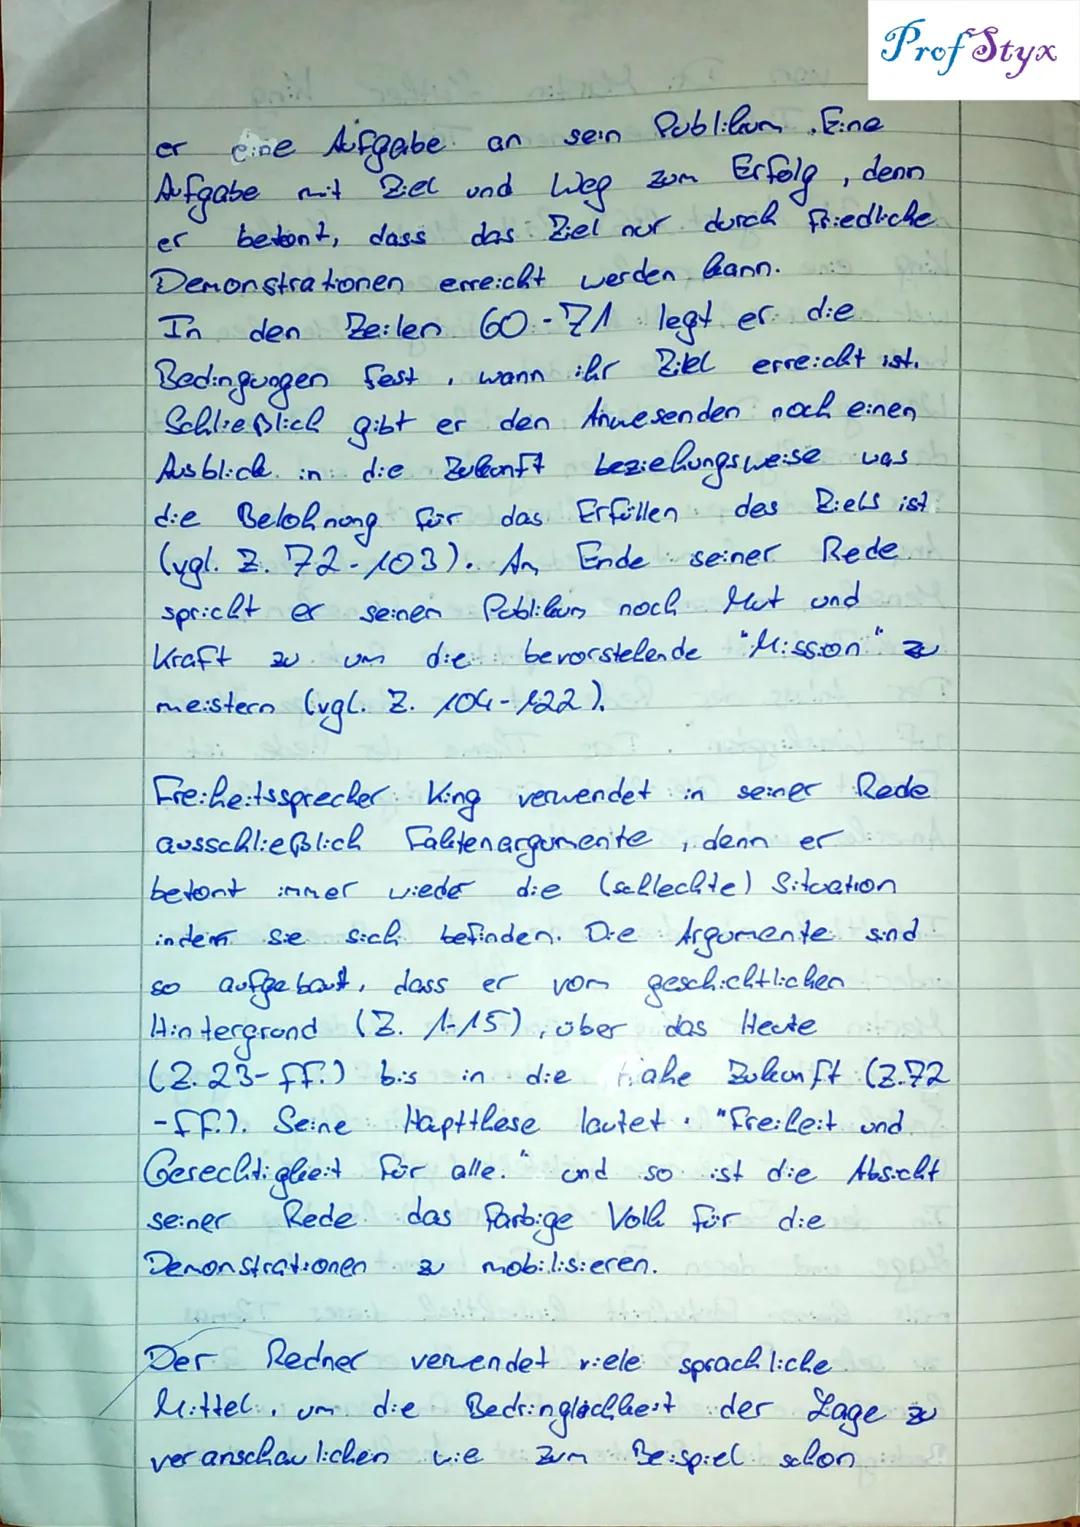 Prof Styx
er eine Aufgabe an sein Publikum. Eine
Aufgabe mit Ziel und Weg zum Erfolg, denn
er betont, dass das Ziel nur durch friedliche
Demonstrationen erreicht werden kann.
In den Zeilen 60-71 legt er die
Bedingungen fest, wann ihr Ziel erreicht ist.
Schließlich gibt er den Anwesenden noch einen
Ausblick in die Zukunft beziehungsweise was
die Belohnung für das Erfüllen des Ziels ist
(vgl. Z. 72-103). Am Ende seiner Rede
spricht er seinen Publikum noch Mut und
Kraft zu um die bevorstehende "Mission" zu
meistern (vgl. Z. 104-122).
Freiheitssprecher King verwendet in seiner Rede
ausschließlich Faktenargumente, denn er
betont immer wieder die (schlechte) Situation
indem sie sich befinden. Die Argumente sind
so aufgebaut, dass er vom geschichtlichen
Hintergrund (Z. 1-15), über das Heute
(Z. 23-ff.) bis in die nahe Zukunft (Z.72
-ff.). Seine Haptthese lautet: "Freiheit und
Gerechtigkeit für alle." und so ist die Absicht
seiner Rede das farbige Volk für die
Demonstrationen zu mobilisieren.
Der Redner verwendet viele sprachliche
Mittel, um die Bedringlichkeit der Lage zu
veranschaulichen wie zum Beispiel schon